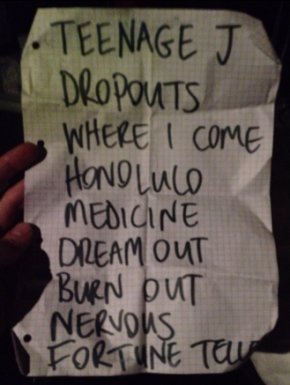 TEENAGE J
DROPOUTS
WHERE I COME
HONOLULU
MEDICINE
DREAM OUT
BURN OUT
NERVOUS
FORTUNE TELL